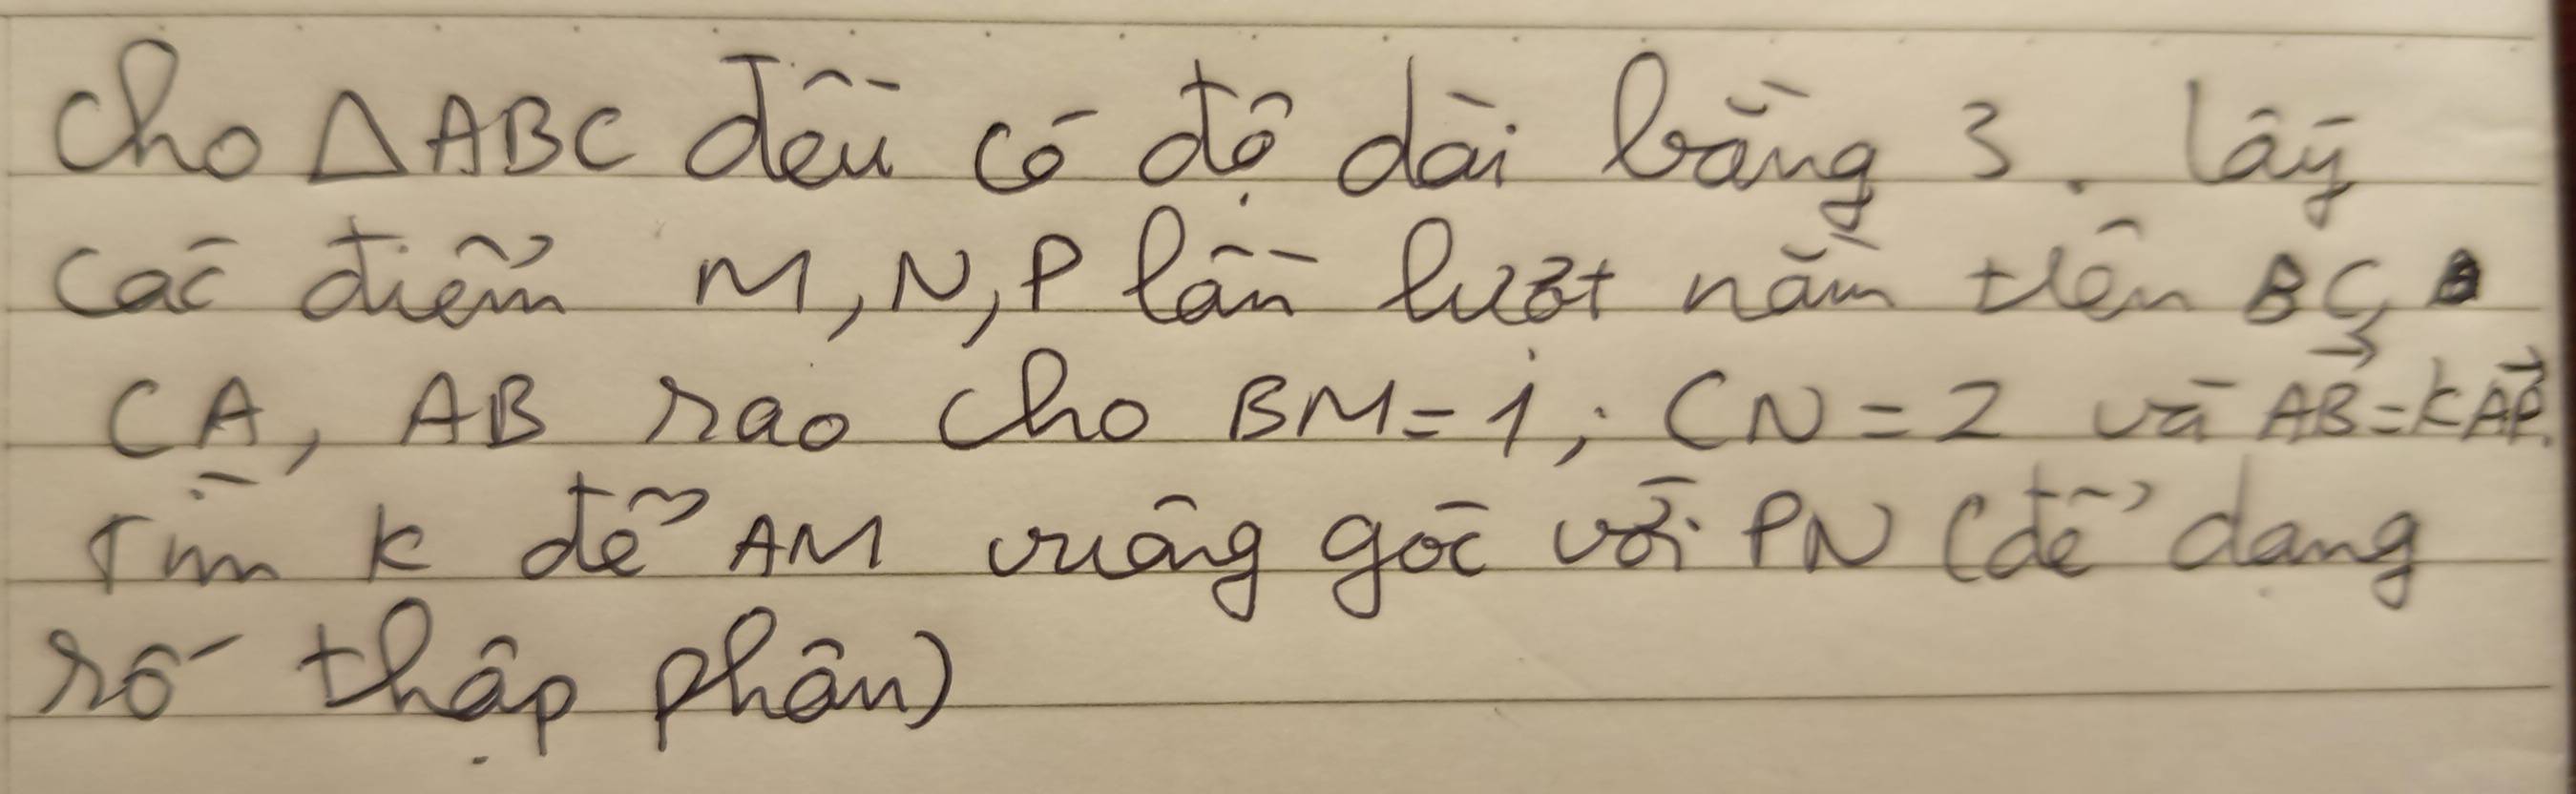 Cho △ABC đều có độ dài bằng 3. Lấy
các điểm M, N, P lần lượt nằm trên BC,
CA, AB sao cho BM = 1; CN = 2 và AB⃗ = kAP⃗.
Tìm k để AM vuông góc với PN (để dạng
số thập phân)